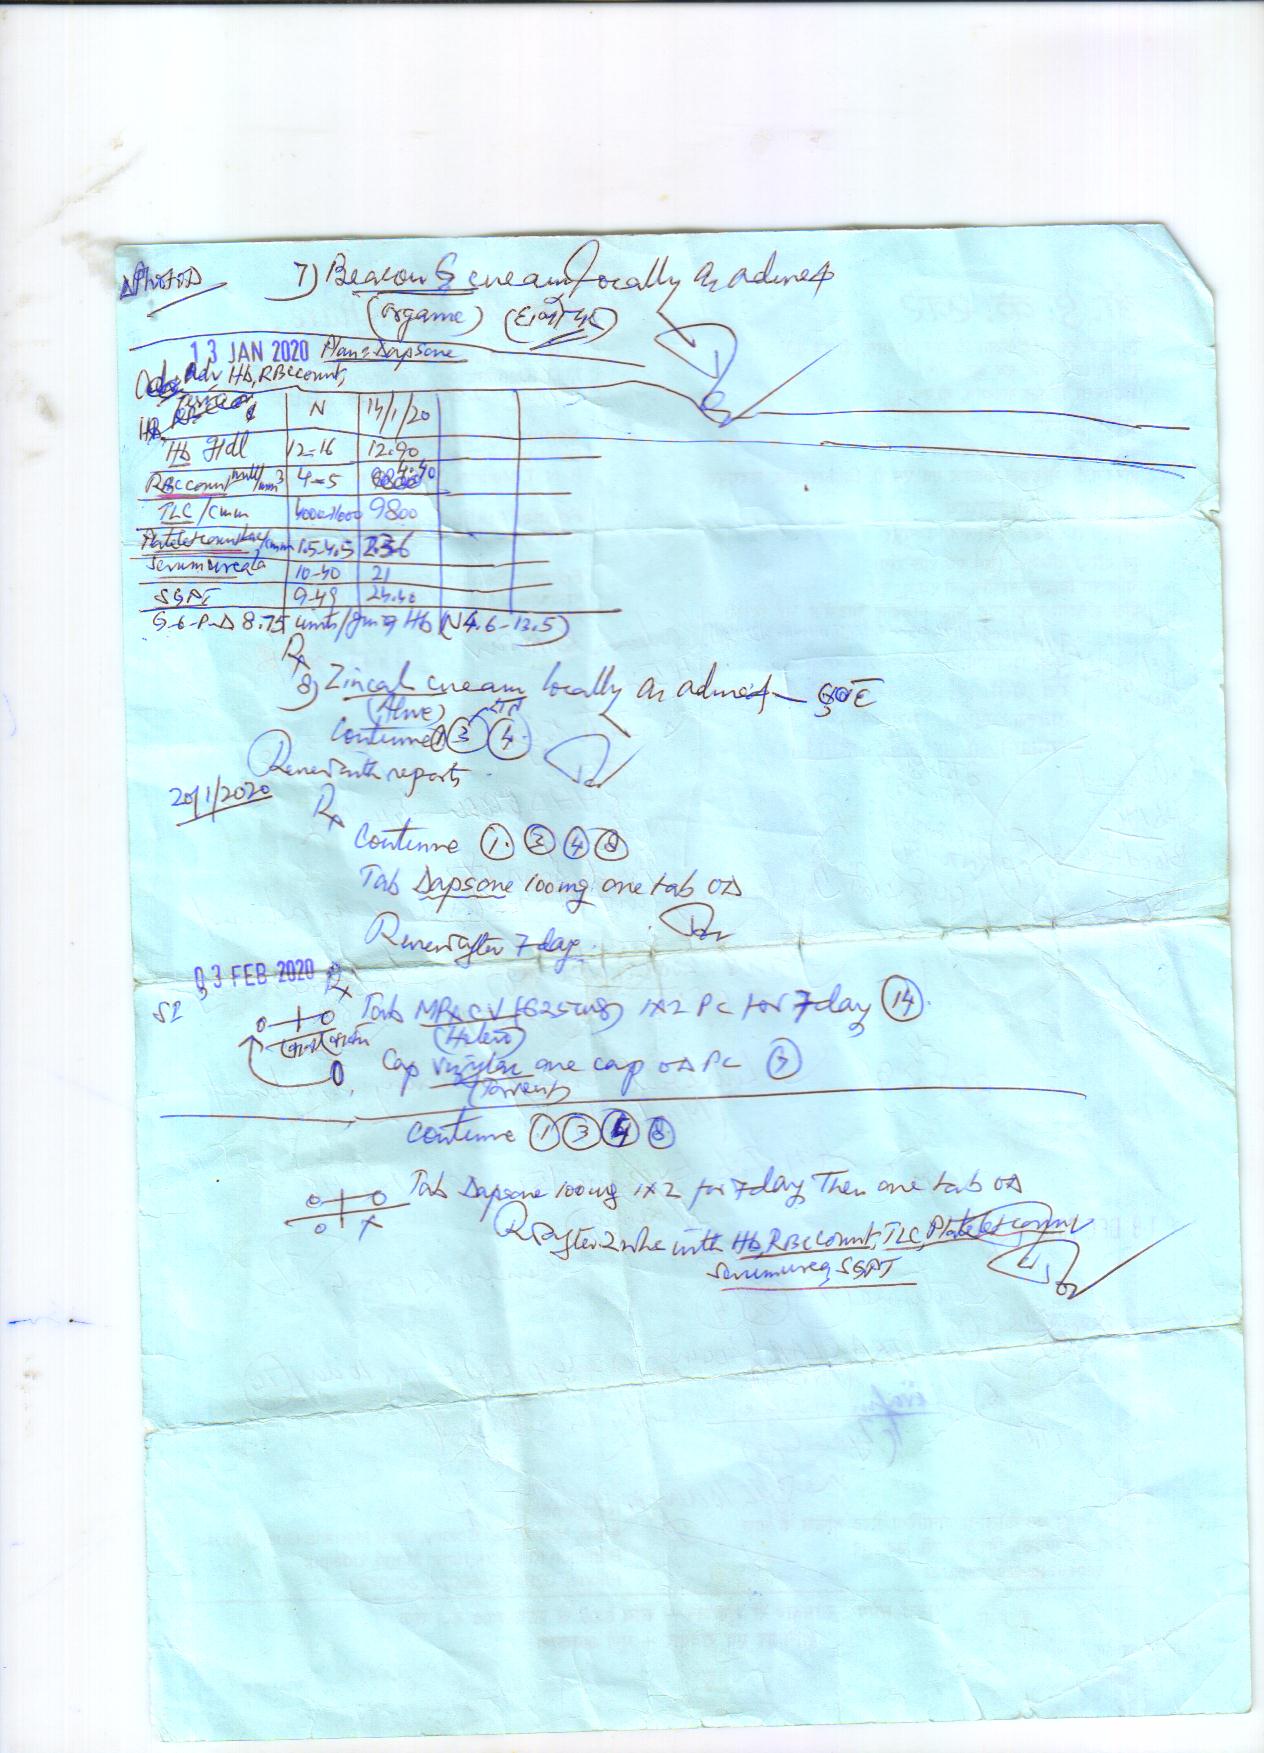 7) Beacon G cream locally as advised
13 JAN 2020 Plan: Dapsone
Adv Hb, RBC count,
N 14/1/20
Hb g/dl 12-16 12.90
RBC count mill/mm3 4-5 4.40
TLC/cmm 4000-11000 9800
Platelet count lac/cmm 1.5-4.5 2.36
Serum urea 10-40 21
SGPT 9-49 24.40
G-6-P-D 8.75 units/gm of Hb (N 4.6-13.5)
Rx
8) Zincal cream locally as advised
Continue 1 3 4
Review with reports
20/1/2020 Rx
Continue 1 3 4 8
Tab Dapsone 100mg one tab OD
Review after 7 day
03 FEB 2020 Rx
Tab CV (625mg) 1x2 PC for 7 days 14
Cap one cap OD PC
(Torrent)
Continue 1 3 4 8
Tab Dapsone 100mg 1x2 for 7 day Then one tab OD
R after 2 wks with Hb, RBC count, TLC, Platelet count
Serum urea, SGPT